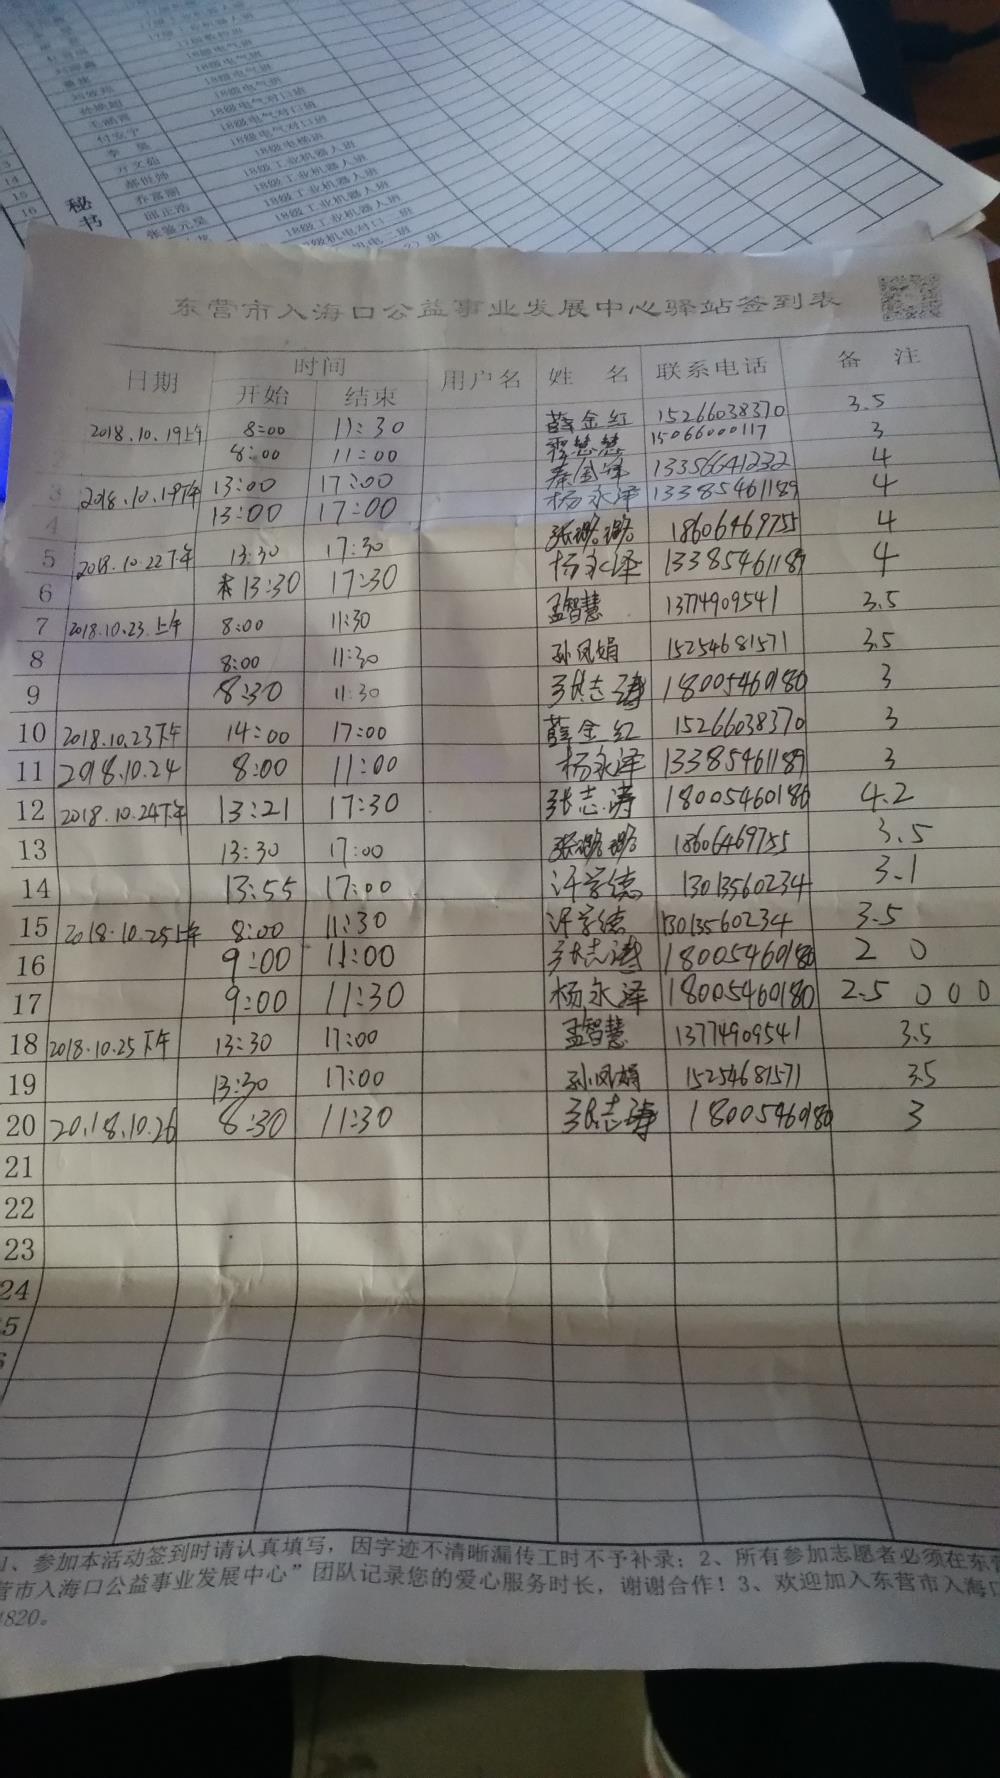 18级电气班
18级电气班
18级电气对口班
18级电气对口班
18级电梯班
18级工业机器人班
18级工业机器人班
18级工业机器人班
14
15
16
秘书
东营市入海口公益事业发展中心驿站签到表
日期 时间 用户名 姓 名 联系电话 备 注
开始 结束
2018.10.19上午 8:00 11:30 薛金红 15266038370 3.5
8:00 11:00 15066000117 3
3 2018.10.19下午 13:00 17:00 13356641232 4
4 13:00 17:00 杨永泽 13385461189 4
5 2018.10.22下午 13:30 17:30 张璐璐 18606469755 4
6 13:30 17:30 杨永泽 13385461189 4
7 2018.10.23.上午 8:00 11:30 孟智慧 13774909541 3.5
8 8:00 11:30 孙凤娟 15254681571 3.5
9 8:30 11:30 张志涛 18005460180 3
10 2018.10.23下午 14:00 17:00 薛金红 15266038370 3
11 2018.10.24 8:00 11:00 杨永泽 13385461189 3
12 2018.10.24下午 13:21 17:30 张志涛 18005460180 4.2
13 13:30 17:00 张璐璐 18606469755 3.5
14 13:55 17:00 许学德 13013560234 3.1
15 2018.10.25上午 8:00 11:30 许学德 13013560234 3.5
16 9:00 11:00 张志涛 18005460180 2 0
17 9:00 11:30 杨永泽 18005460180 2.5 0 0 0
18 2018.10.25下午 13:30 17:00 孟智慧 13774909541 3.5
19 13:30 17:00 孙凤娟 15254681571 3.5
20 2018.10.26 8:30 11:30 张志涛 18005460180 3
21
22
23
24
5
1、参加本活动签到时请认真填写，因字迹不清晰漏传工时不予补录；2、所有参加志愿者必须在东
营市入海口公益事业发展中心”团队记录您的爱心服务时长，谢谢合作！3、欢迎加入东营市入海口
4820。